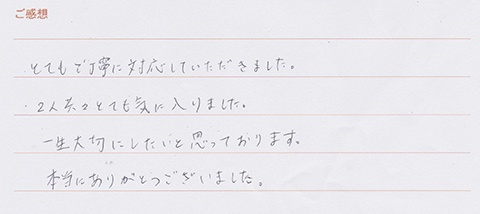 ご感想
とてもご丁寧に対応していただきました。
2人共々とても気に入りました。
一生大切にしたいと思っております。
本当にありがとうございました。